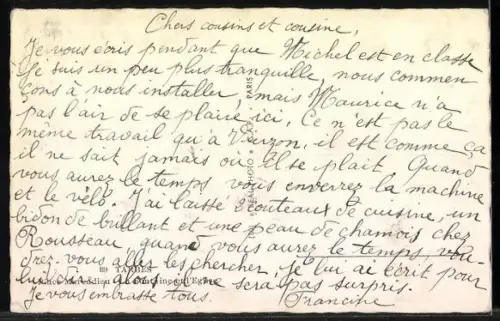 Chers cousins et cousine,
Je vous écris pendant que Michel est en classe
je suis un peu plus tranquille, nous commen
çons à nous installer, mais Maurice n'a
pas l'air de se plaire ici. Ce n'est pas le
même travail qu'à Vierzon, il est comme ça
il ne sait jamais où il se plait. Quand
vous aurez le temps vous enverrez la machine
et le vélo. J'ai laissé 2 couteaux de cuisine, un
bidon de brillant et une peau de chamois chez
Rousseau, quand vous aurez le temps, vou-
drez-vous aller les chercher, je lui ai écrit pour
lui dire alors il ne sera pas surpris.
Je vous embrasse tous. Francine
TARBES
PARIS